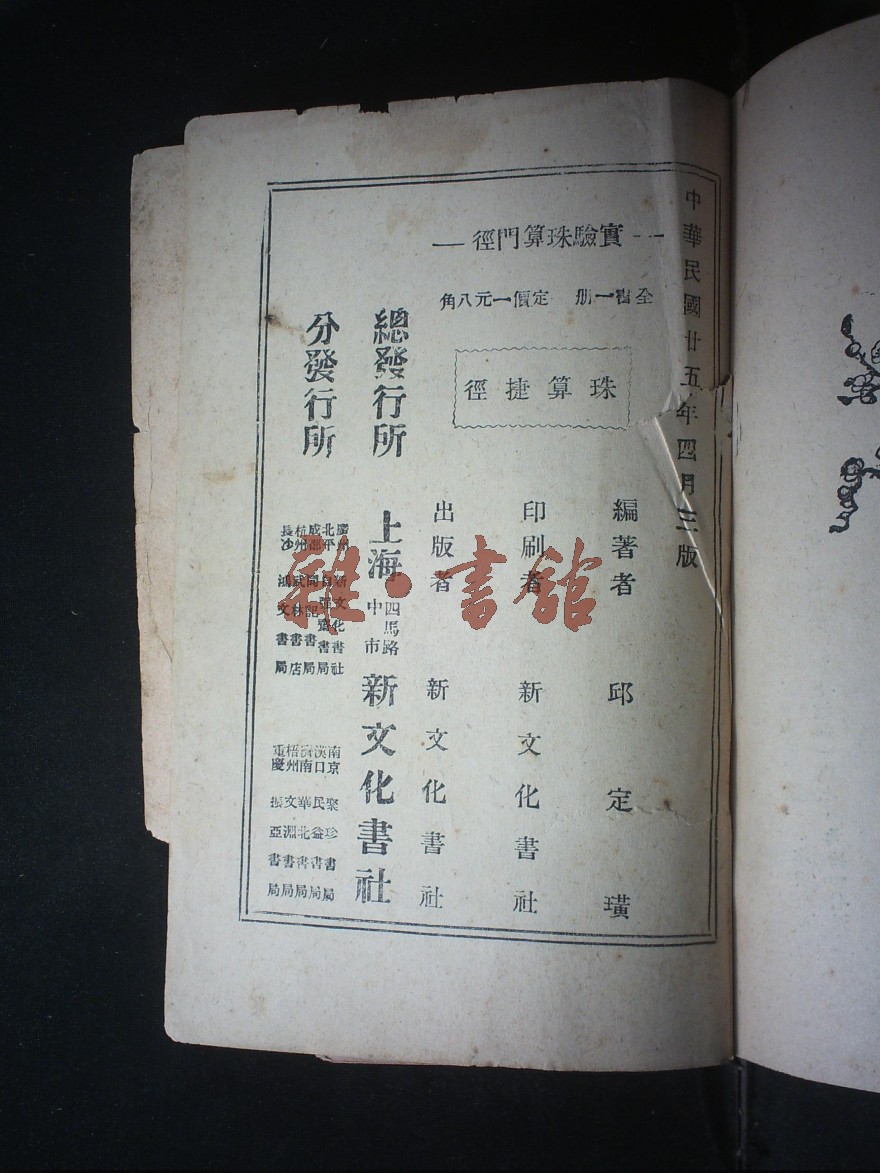 中華民國廿五年四月三版
實驗珠算門徑
全書一册 定價一元八角
珠算捷徑
編著者 邱定璜
印刷者 新文化書社
出版者 新文化書社
總發行所 上海四馬路中市 新文化書社
分發行所
廣州 新文化書社
北平 自強書局
成都 同記書局
杭州 武林書店
長沙 鴻文書局
南京 聚珍書局
漢口 民益書局
濟南 華北書局
梧州 文淵書局
重慶 振亞書局
雜·書館